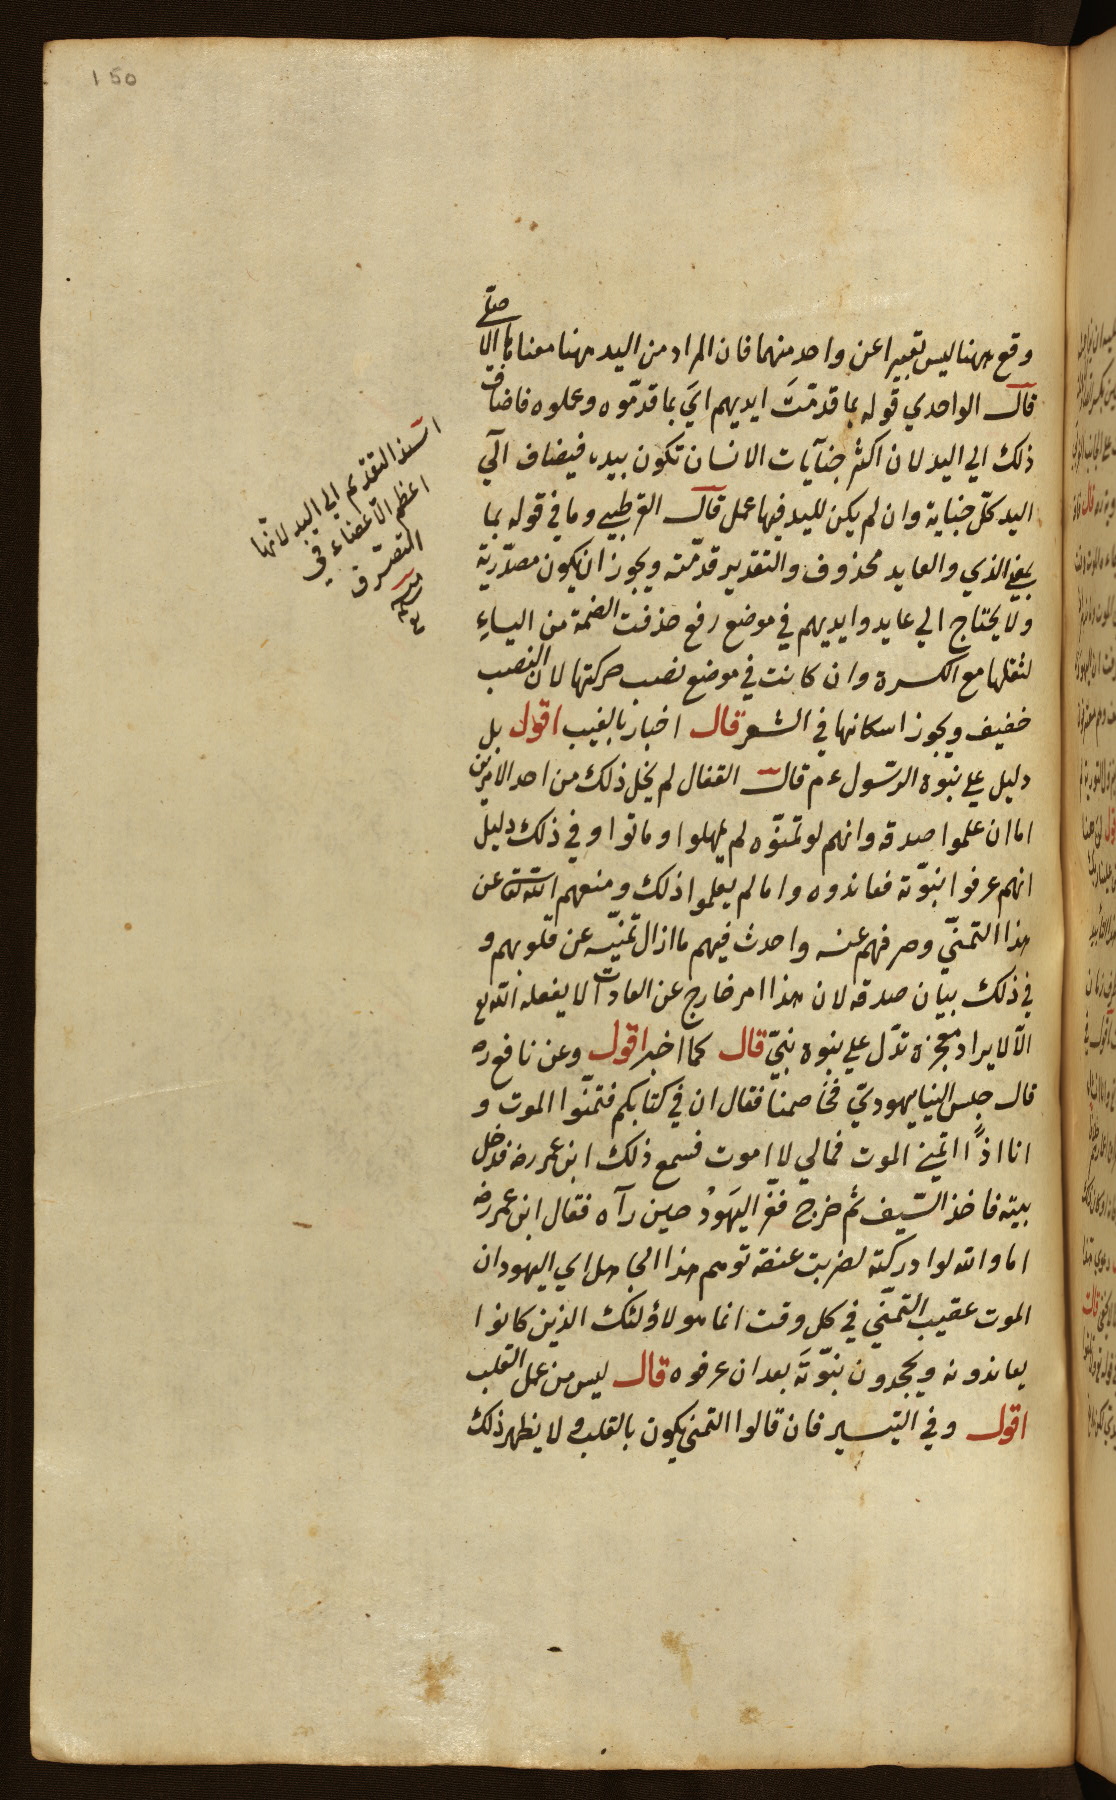 150
وقع ههنا ليس تعبيرا عن واحد منهما فان المراد من اليد ههنا معناها الاصلي
قال الواحدي قوله بما قدمت ايديهم اي بما قدّموه وعملوه فاضاف
ذلك الي اليد لان اكثر جنايات الانسان تكون بيده فيضاف الي
اليد كلّ جناية وان لم يكن لليد فيها عمل قال القرطبي وما في قوله بما
بمعني الذي والعايد محذوف والتقدير قدّمته ويجوز ان يكون مصدريّة
ولا يحتاج الي عايد وايديهم في موضع رفع حذفت الضمة من الياء
لثقلها مع الكسرة وان كانت في موضع نصب حركتها لان النصب
خفيف ويجوز اسكانها في الشعر قال اخبار بالغيب اقول بل
دليل علي نبوّة الرسول عم قال القفال لم يخل ذلك من احد الامرين
اما ان علموا صدقه وانهم لو تمنّوه لم يمهلوا وماتوا وفي ذلك دليل
انهم عرفوا نبوّته فعاندوه واما لم يعلموا ذلك ومنعهم الله تعا عن
هذا التمنّي وصرفهم عنه واحدث فيهم ما ازال تمنّيه عن قلوبهم و
في ذلك بيان صدقه لان هذا امر خارج عن العادات لا يفعله الله تع
الّا لايراد معجزة تدّل علي نبوة نبيّ قال كما اخبر اقول وعن نافع ره
قال جلس الينا يهوديّ فخاصمنا فقال ان في كتابكم فتمنّوا الموت و
انا اذًا اتمني الموت فمالي لا اموت فسمع ذلك ابن عمر رضه فدخل
بيته فاخذ السّيف ثم خرج ففرّ اليهود حين رآه فقال ابن عمر رضه
اما والله لو ادركته لضربت عنقه توهم هذا الجاهل اي اليهود ان
الموت عقيب التمنّي في كل وقت انما هو لاولئك الذين كانوا
يعاندونه ويجحدون نبوّته بعد ان عرفوه قال ليس من عمل القلب
اقول وفي التيسير فان قالوا التمني يكون بالقلب ولا يظهر ذلك
اسند التقديم الي اليد لانّها
اعظم الاعضاء في
التصرف